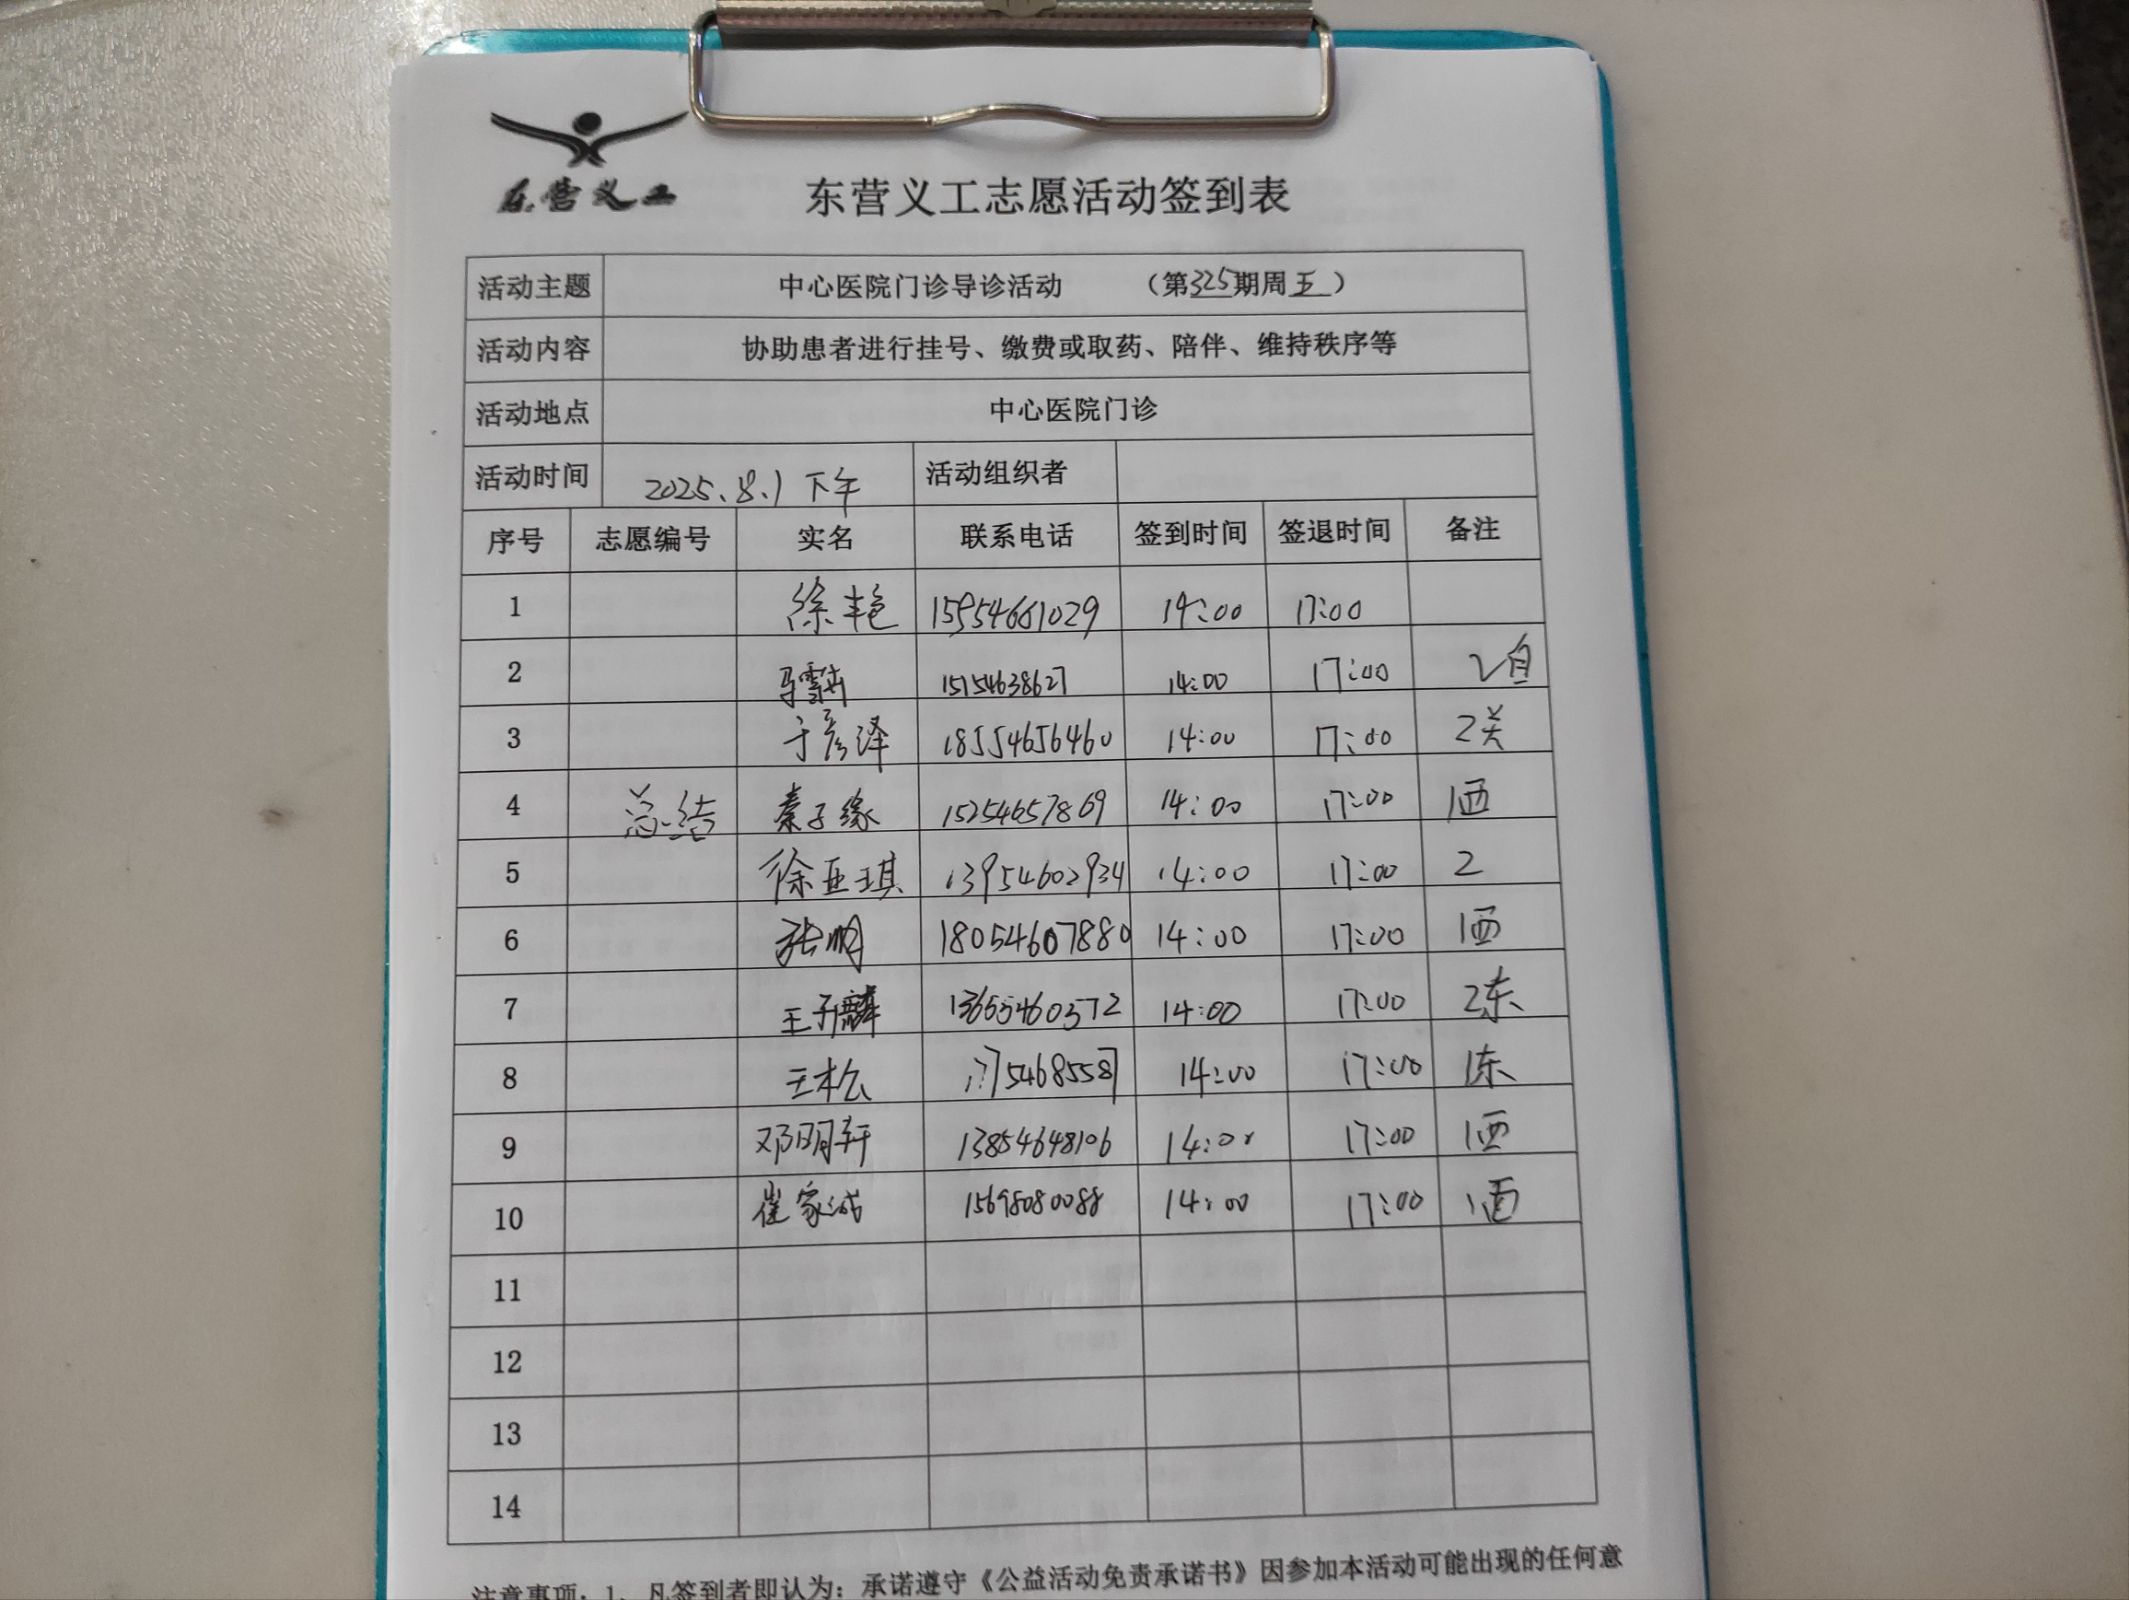 东营义工
东营义工志愿活动签到表
活动主题 中心医院门诊导诊活动 （第325期周五）
活动内容 协助患者进行挂号、缴费或取药、陪伴、维持秩序等
活动地点 中心医院门诊
活动时间 2025.8.1 下午 活动组织者
序号 志愿编号 实名 联系电话 签到时间 签退时间 备注
1 徐丰艳 15954661029 14:00 17:00
2 15154638627 14:00 17:00
3 于彦泽 18554656460 14:00 17:00 2关
4 总结 秦子缘 15254657869 14:00 17:00 1西
5 徐亚琪 13954602934 14:00 17:00 2
6 张明 18054607880 14:00 17:00 1西
7 王子麟 13655460572 14:00 17:00 2东
8 王松 14:00 17:00 1东
9 邓明轩 13854648106 14:00 17:00 1西
10 崔家诚 15698080088 14:00 17:00 1西
11
12
13
14
注意事项：1、凡签到者即认为：承诺遵守《公益活动免责承诺书》因参加本活动可能出现的任何意